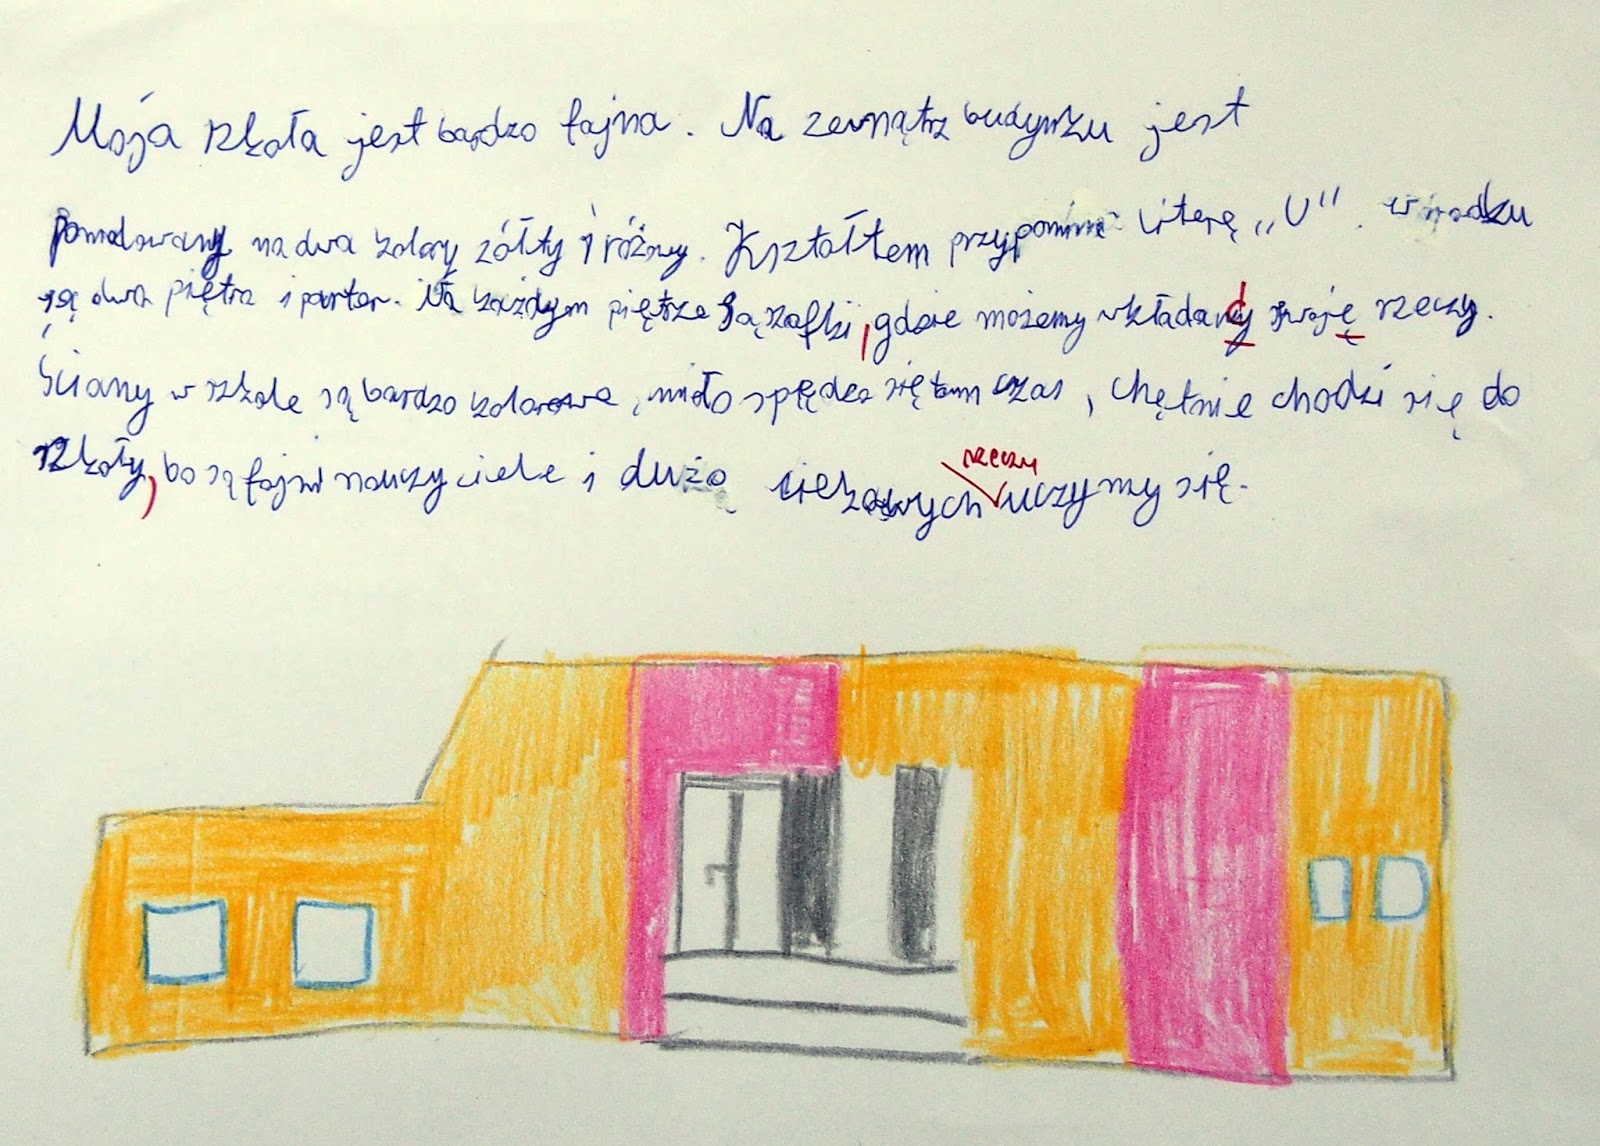 Moja szkoła jest bardzo fajna. Na zewnątrz budynku jest
pomalowany na dwa kolory żółty i różowy. Kształtem przypomina literę „U”. w środku
są dwa piętra i parter. Na każdym piętrze są szafki, gdzie możemy wkładać swoję rzeczy.
Ściany w szkole są bardzo kolorowe, miło spędza się tam czas, chętnie chodzi się do
szkoły, bo są fajni nauczyciele i dużo ciekawych rzeczy uczymy się.